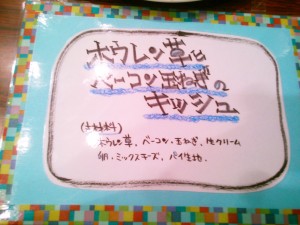 ホウレン草と
ベーコン玉ねぎの
キッシュ
(材料)
ホウレン草、ベーコン・玉ねぎ、生クリーム
卵・ミックスチーズ、パイ生地